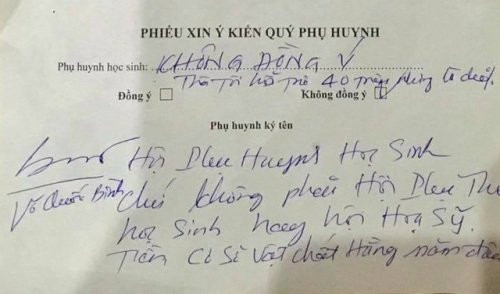 PHIẾU XIN Ý KIẾN QUÝ PHỤ HUYNH
Phụ huynh học sinh: KHÔNG ĐỒNG Ý
40 triệu
Đồng ý Không đồng ý
Phụ huynh ký tên
Hội Phụ Huynh Học Sinh
Võ Quốc Bình
chứ không phải Hội Phụ Thu
học sinh hay hội Hoạ Sỹ
Tiền Cơ Sở Vật chất Hằng năm đâu